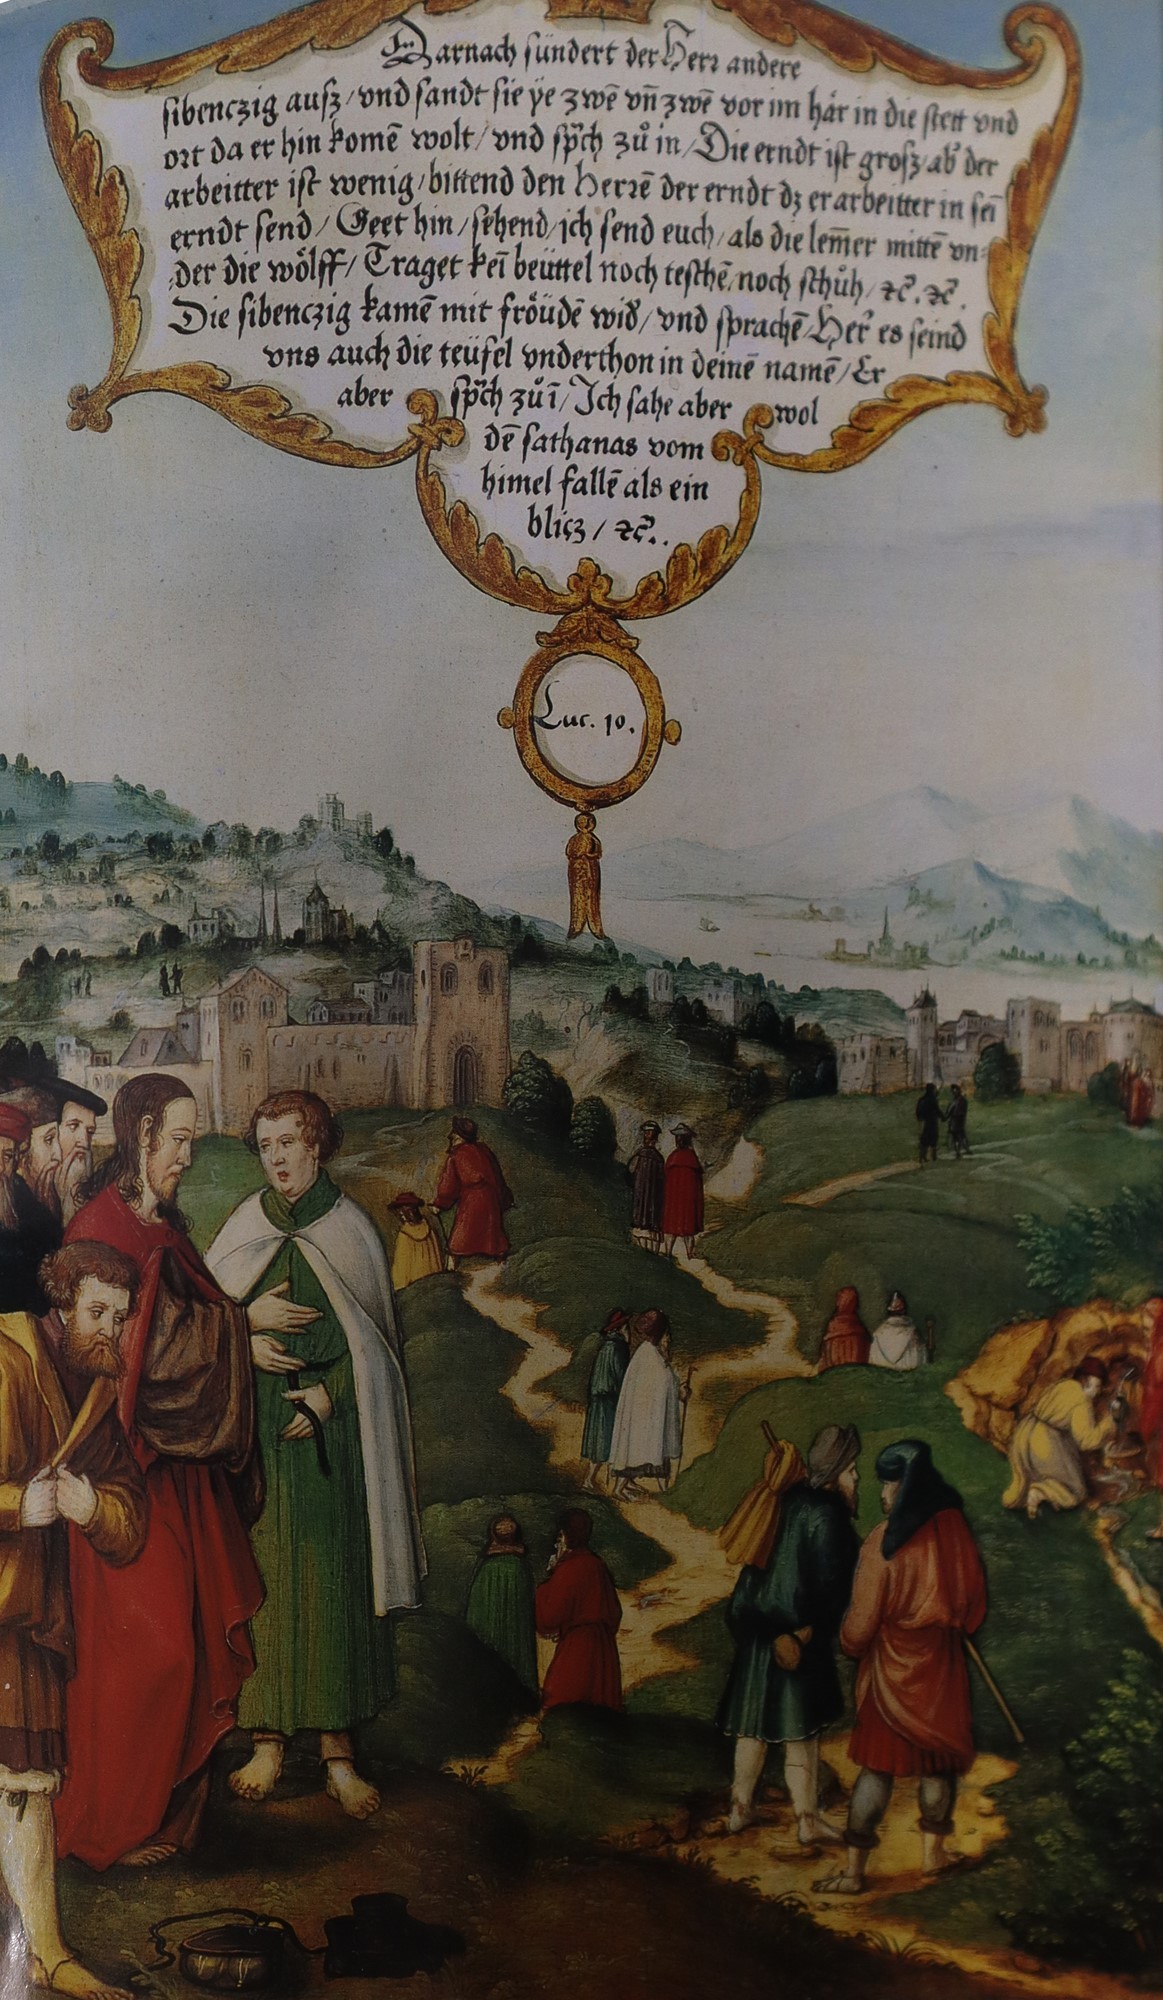 Darnach sündert der Herr andere
sibenczig ausz/ vnd sandt sie ye zwē vñ zwē vor im här in die stett vnd
ort da er hin komē wolt/ vnd sp̈ch zů in/ Die erndt ist grosz/ ab̾ der
arbeitter ist wenig/ bittend den Herrē der erndt dz er arbeitter in sei̅
erndt send/ Geet hin/ sehend/ ich send euch/ als die lem̅er mittē vn⸗
der die wölff/ Traget kei̅ beüttel noch teschē/ noch schůh/ ꝛc̄. ꝛc̄.
Die sibenczig kamē mit fröüdē wid̾/ vnd sprachē/ Her̾ es seind
vns auch die teüfel vnderthon in deinē namē/ Er
aber sp̈ch zů i̅/ Ich sahe aber wol
dē sathanas vom
himel fallē als ein
blicz/ ꝛc̄..
Luc. 10.